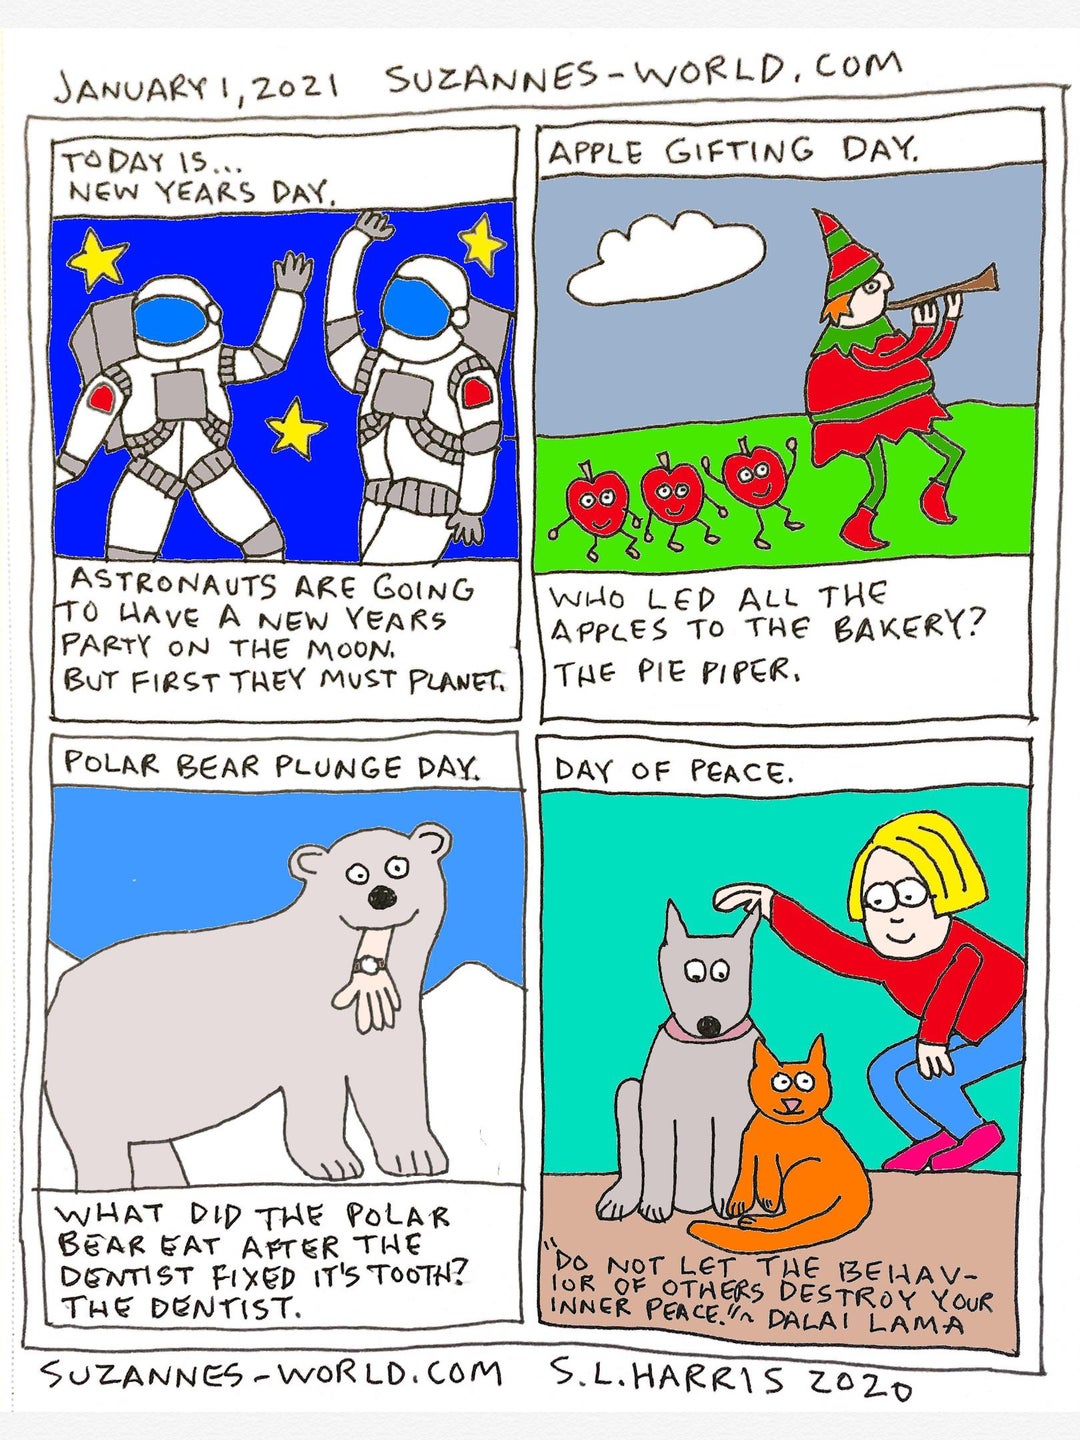 JANUARY 1, 2021 SUZANNES-WORLD.COM
TODAY IS...
NEW YEARS DAY.
ASTRONAUTS ARE GOING
TO HAVE A NEW YEARS
PARTY ON THE MOON.
BUT FIRST THEY MUST PLANET.
APPLE GIFTING DAY.
WHO LED ALL THE
APPLES TO THE BAKERY?
THE PIE PIPER.
POLAR BEAR PLUNGE DAY.
WHAT DID THE POLAR
BEAR EAT AFTER THE
DENTIST FIXED IT'S TOOTH?
THE DENTIST.
DAY OF PEACE.
"DO NOT LET THE BEHAV-
IOR OF OTHERS DESTROY YOUR
INNER PEACE."~ DALAI LAMA
SUZANNES-WORLD.COM S.L.HARRIS 2020